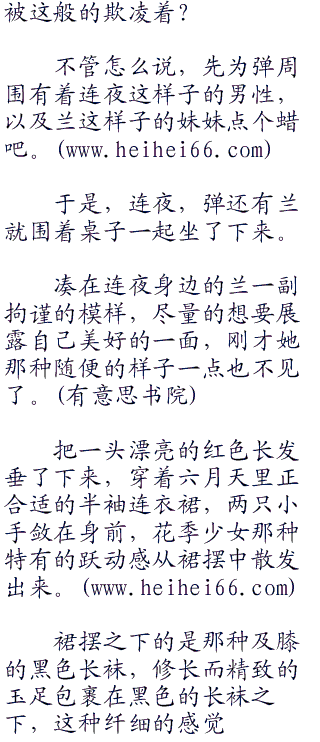 被这般的欺凌着？
不管怎么说，先为弹周
围有着连夜这样子的男性，
以及兰这样子的妹妹点个蜡
吧。(www.heihei66.com)
于是，连夜，弹还有兰
就围着桌子一起坐了下来。
凑在连夜身边的兰一副
拘谨的模样，尽量的想要展
露自己美好的一面，刚才她
那种随便的样子一点也不见
了。(有意思书院)
把一头漂亮的红色长发
垂了下来，穿着六月天里正
合适的半袖连衣裙，两只小
手敛在身前，花季少女那种
特有的跃动感从裙摆中散发
出来。(www.heihei66.com)
裙摆之下的是那种及膝
的黑色长袜，修长而精致的
玉足包裹在黑色的长袜之
下，这种纤细的感觉